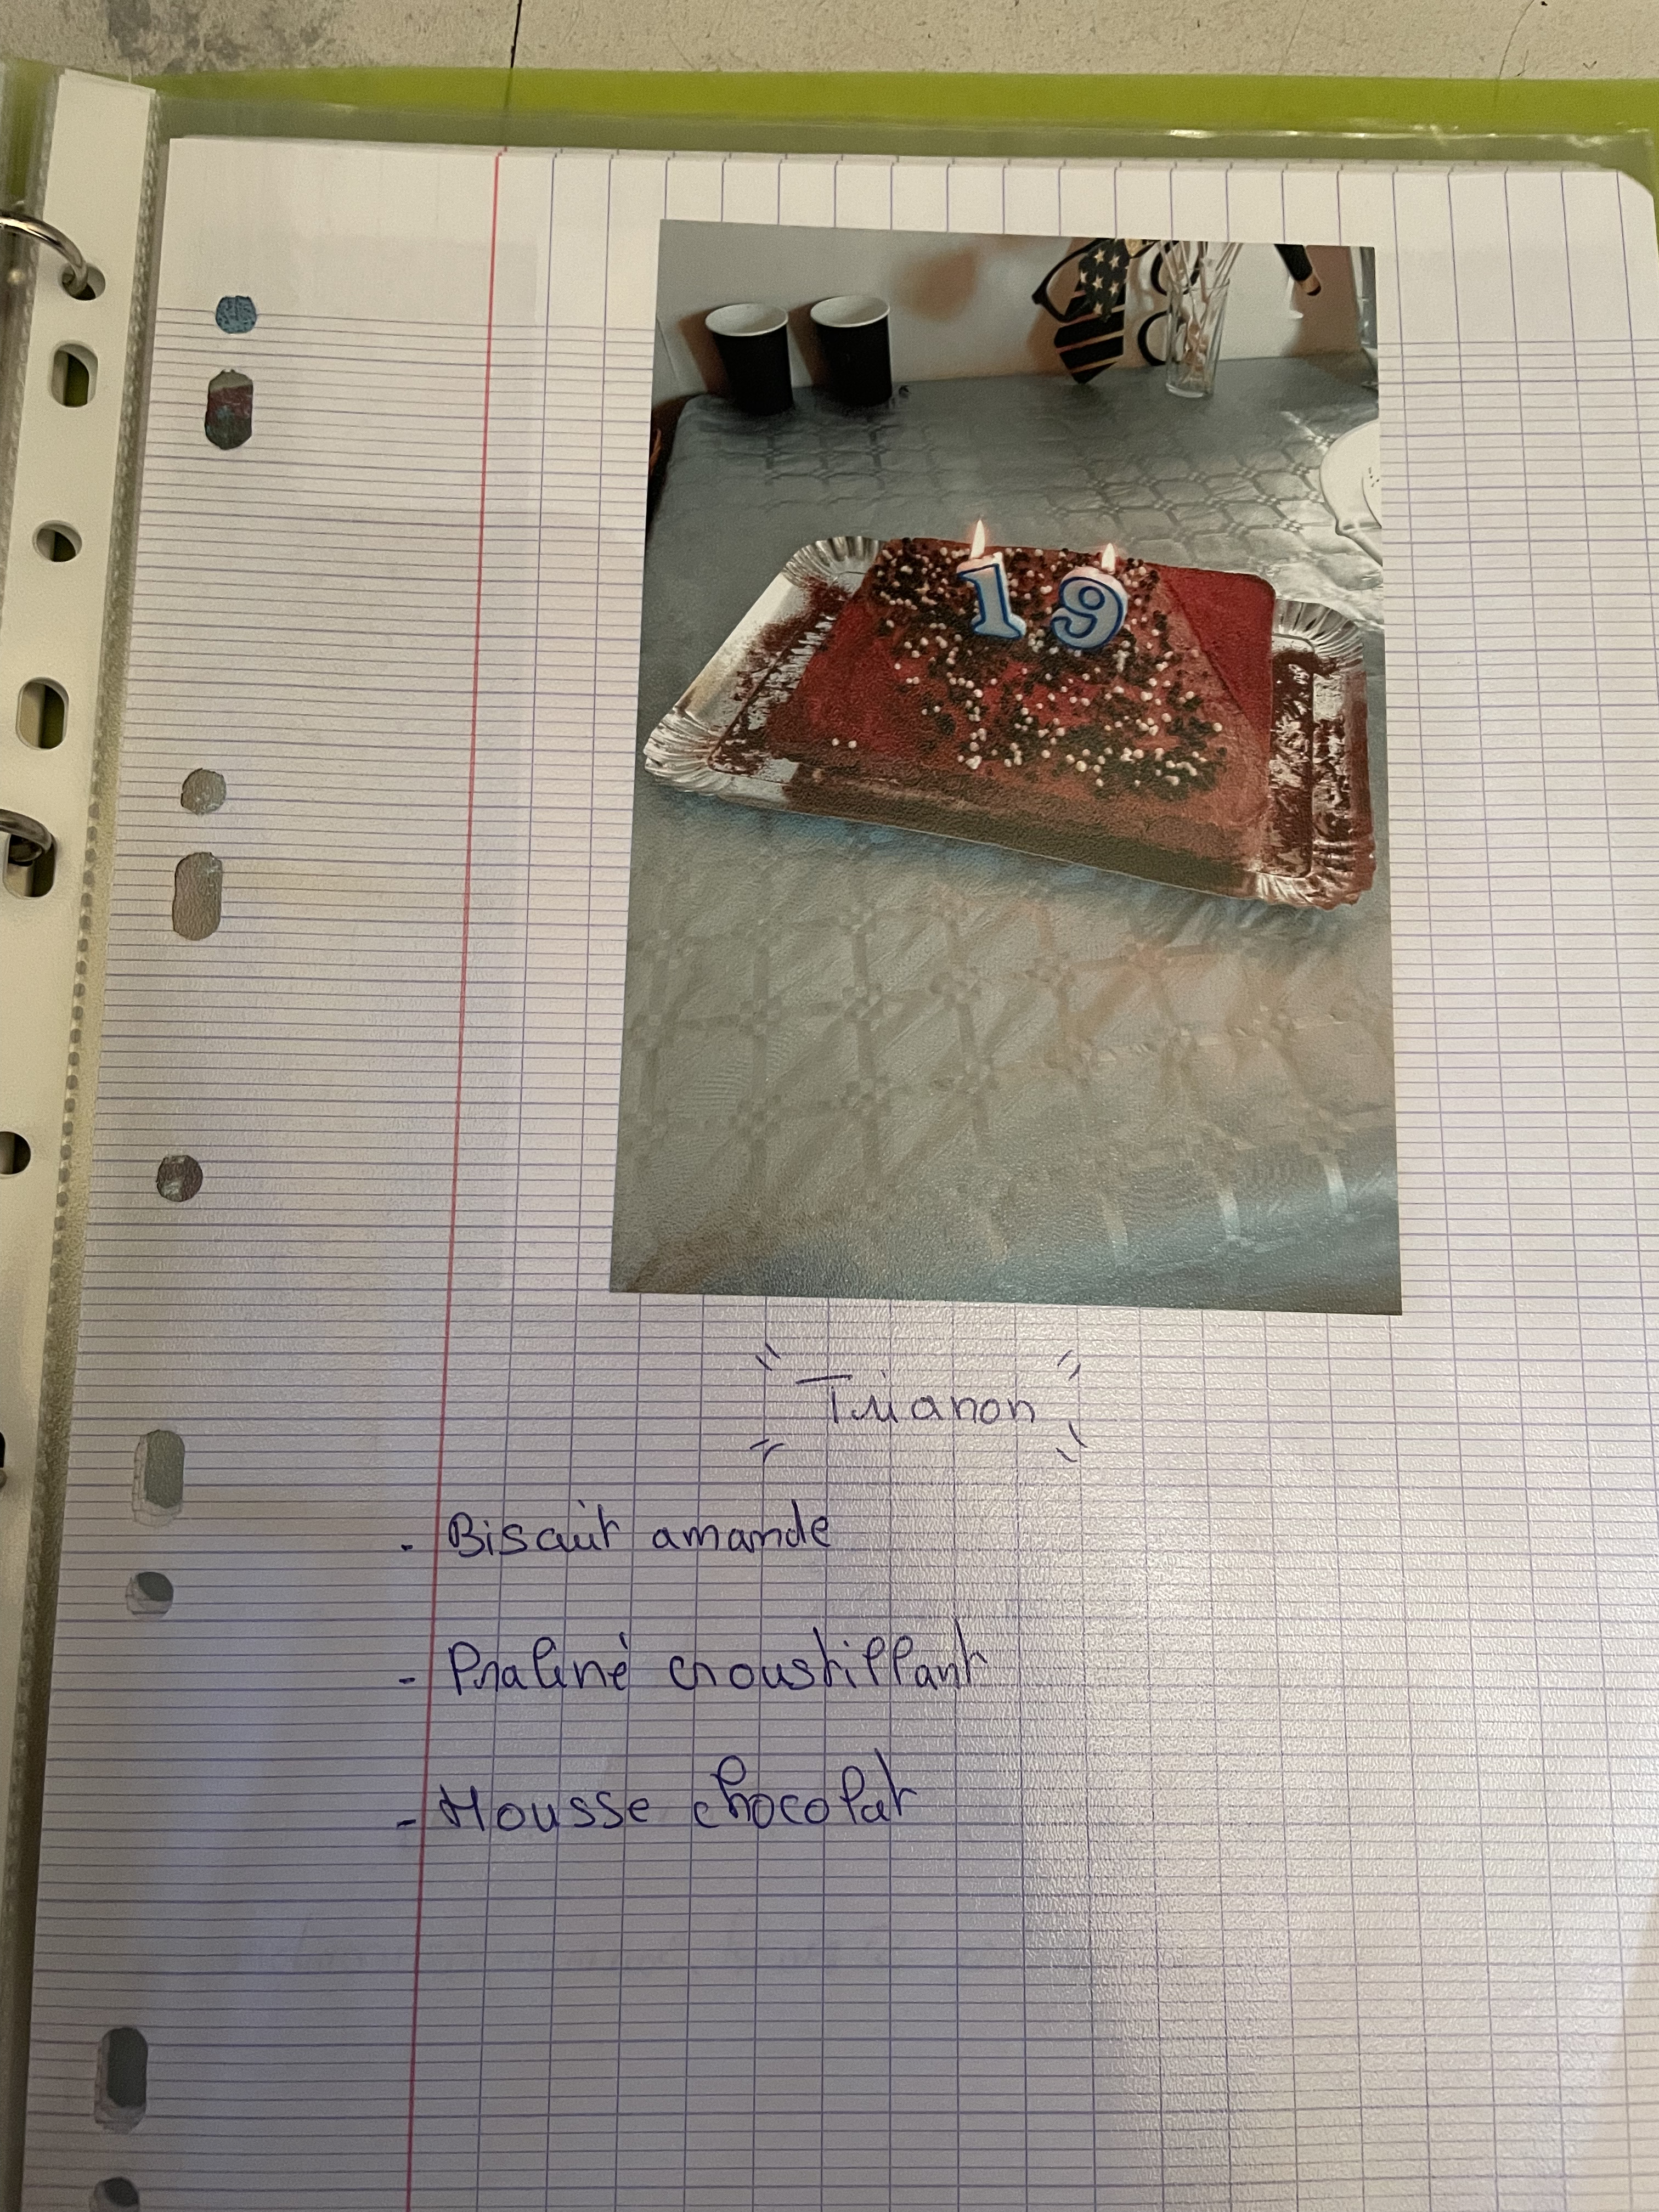 19
Trianon
- Biscuit amande
- Praliné croustillant
- Mousse chocolat